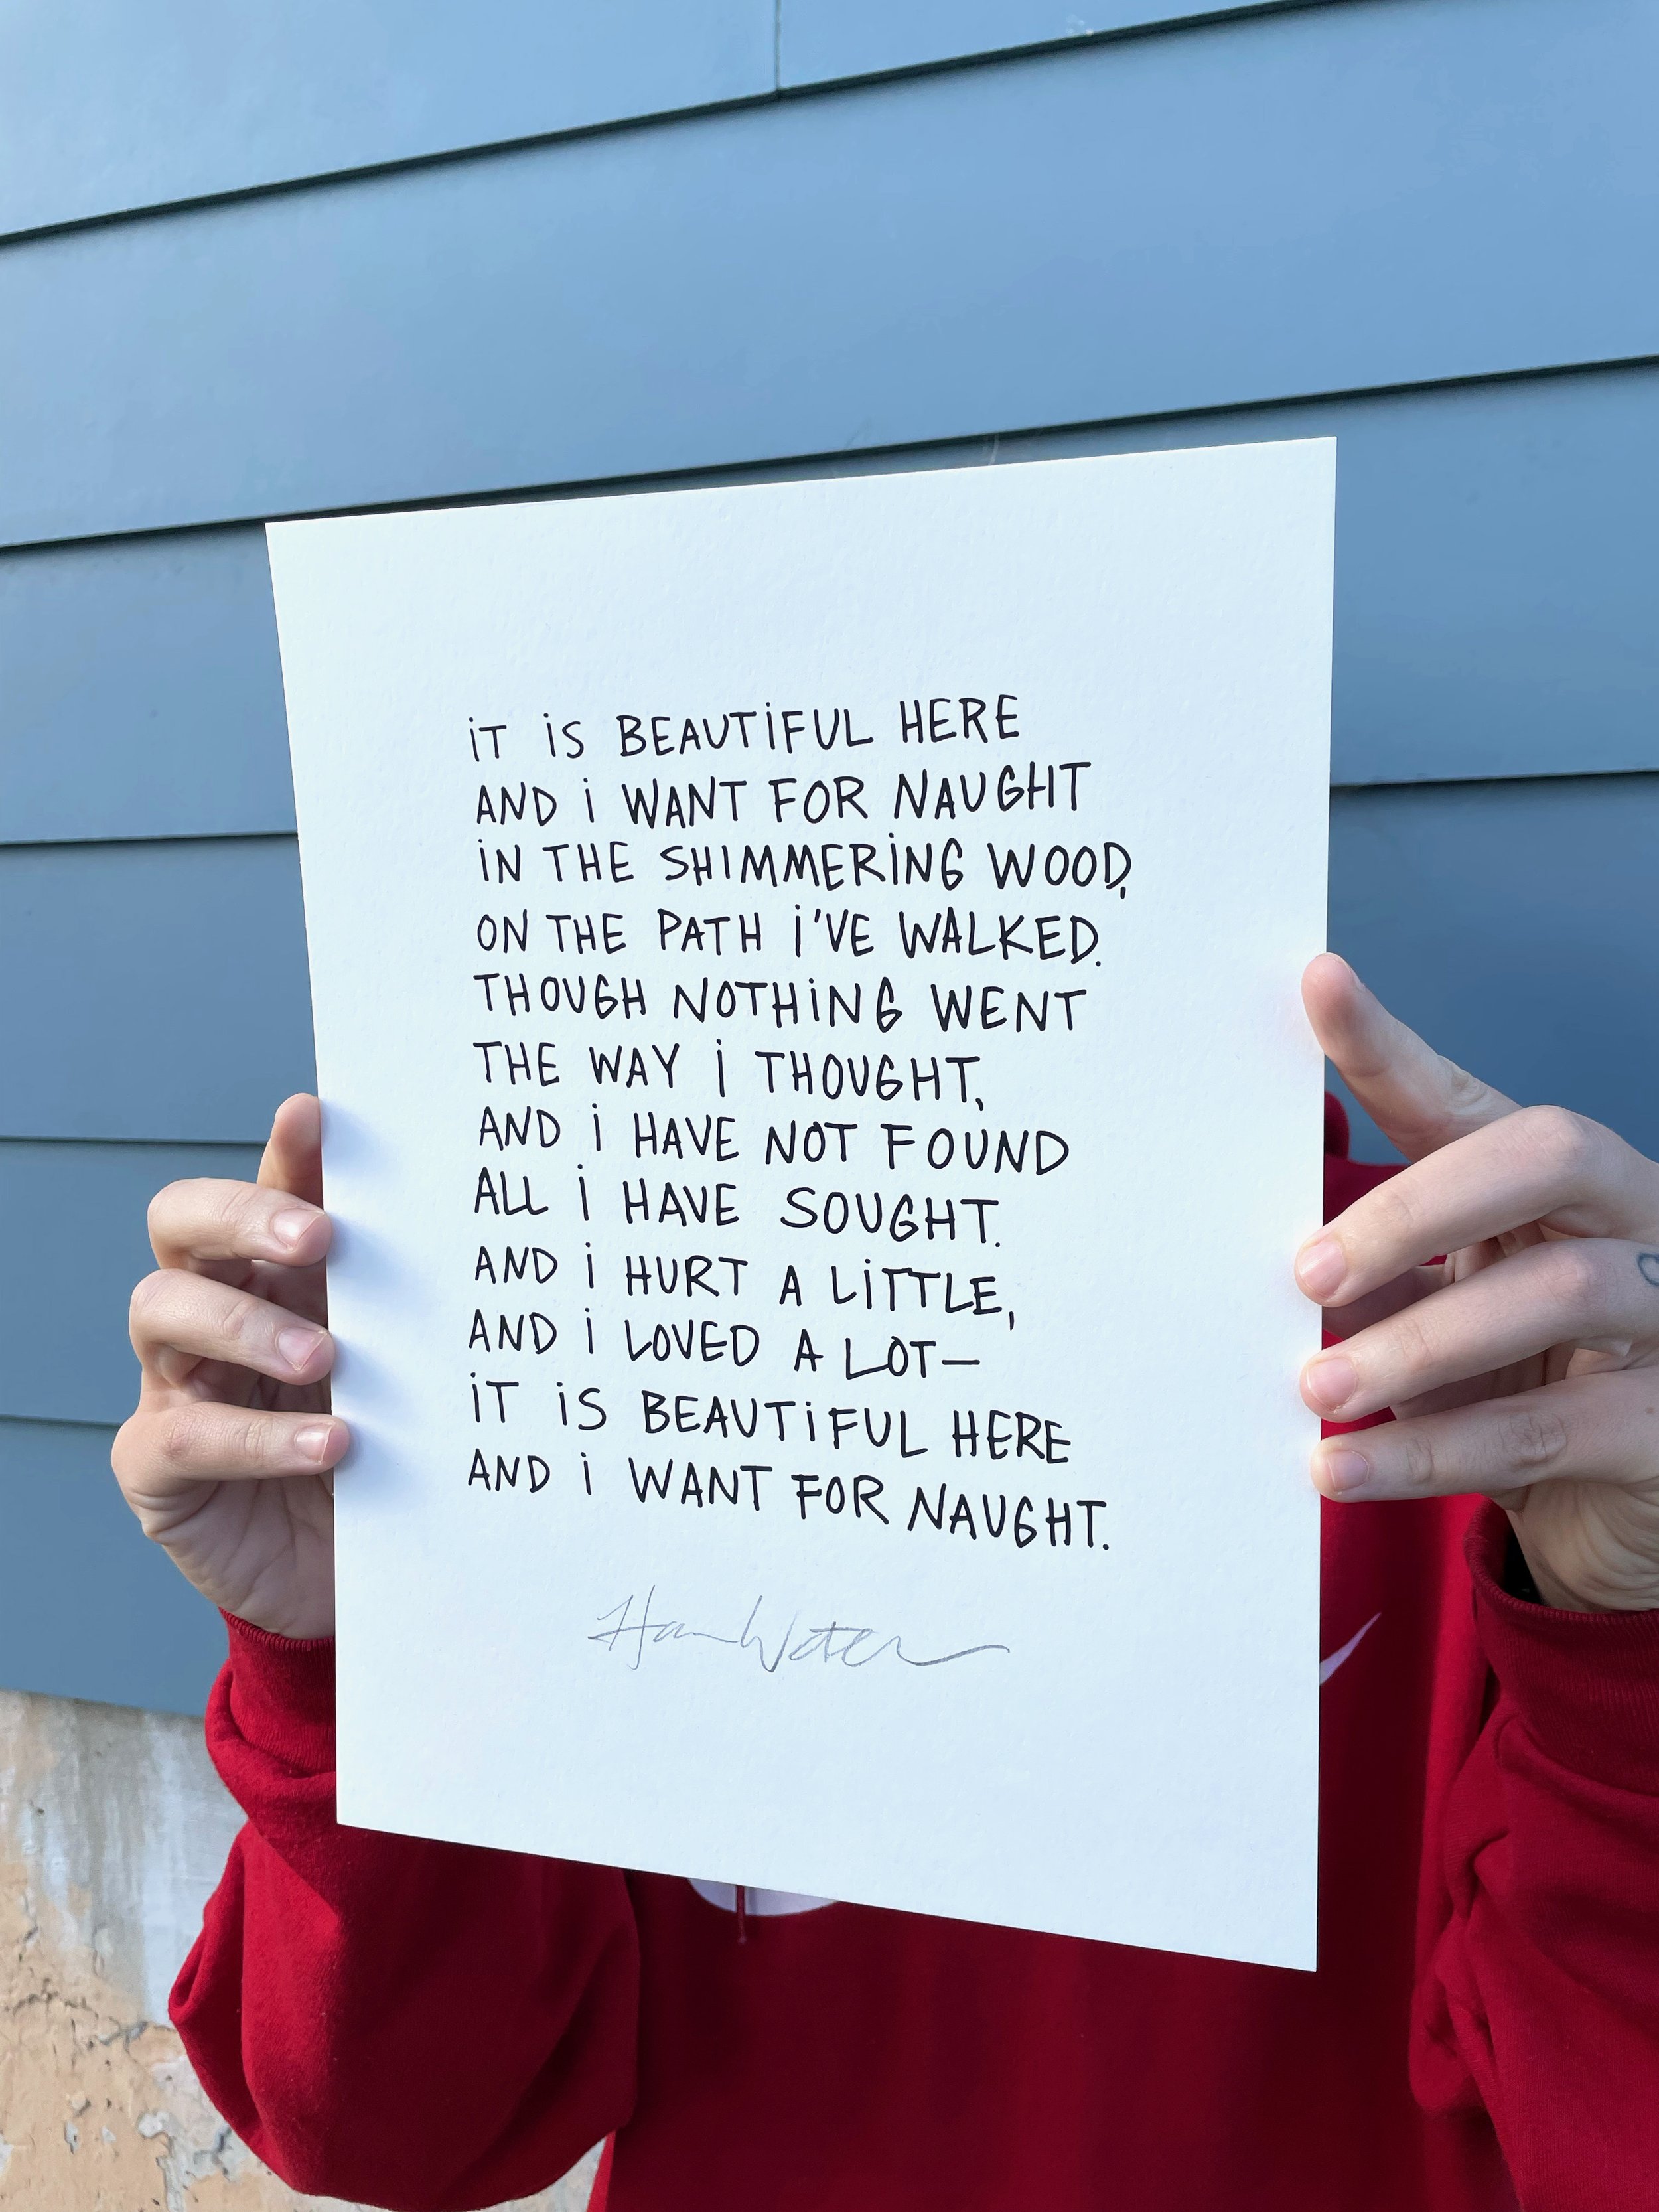 iT iS BEAUTiFUL HERE
AND i WANT FOR NAUGHT
iN THE SHIMMERiNG WOOD,
ON THE PATH i'VE WALKED.
THOUGH NOTHiNG WENT
THE WAY i THOUGHT,
AND i HAVE NOT FOUND
ALL i HAVE SOUGHT.
AND i HURT A LiTTLE,
AND i LOVED A LOT—
iT iS BEAUTiFUL HERE
AND i WANT FOR NAUGHT.